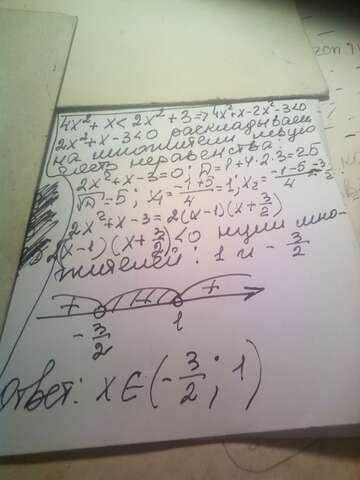 4x² + x < 2x² + 3 => 4x² + x - 2x² - 3 < 0
2x² + x - 3 < 0 раскладываем
на множители левую
часть неравенства:
2x² + x - 3 = 0; D = 1 + 4·2·3 = 25
√D = 5; x₁ = (-1+5)/4 = 1; x₂ = (-1-5)/4 = -3/2
2x² + x - 3 = 2(x-1)(x+3/2)
(x-1)(x+3/2) < 0 нули мно-
жителей: 1 и -3/2
+ +
-3/2 1
Ответ: x ∈ (-3/2; 1)